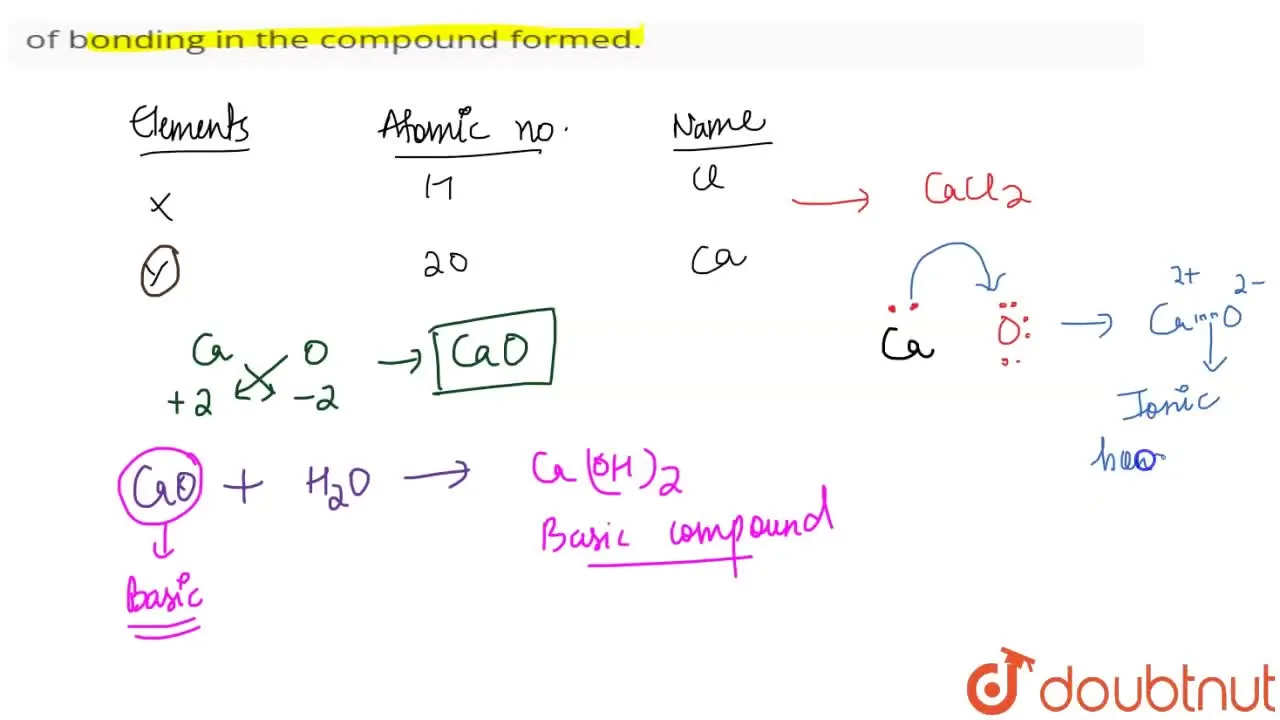 of bonding in the compound formed.
Elements Atomic no. Name
X 17 Cl → CaCl2
Y 20 Ca
Ca O → CaO
+2 -2
Ca O → Ca O
2+ 2-
Ionic
CaO + H2O → Ca(OH)2
Basic compound
Basic
doubtnut